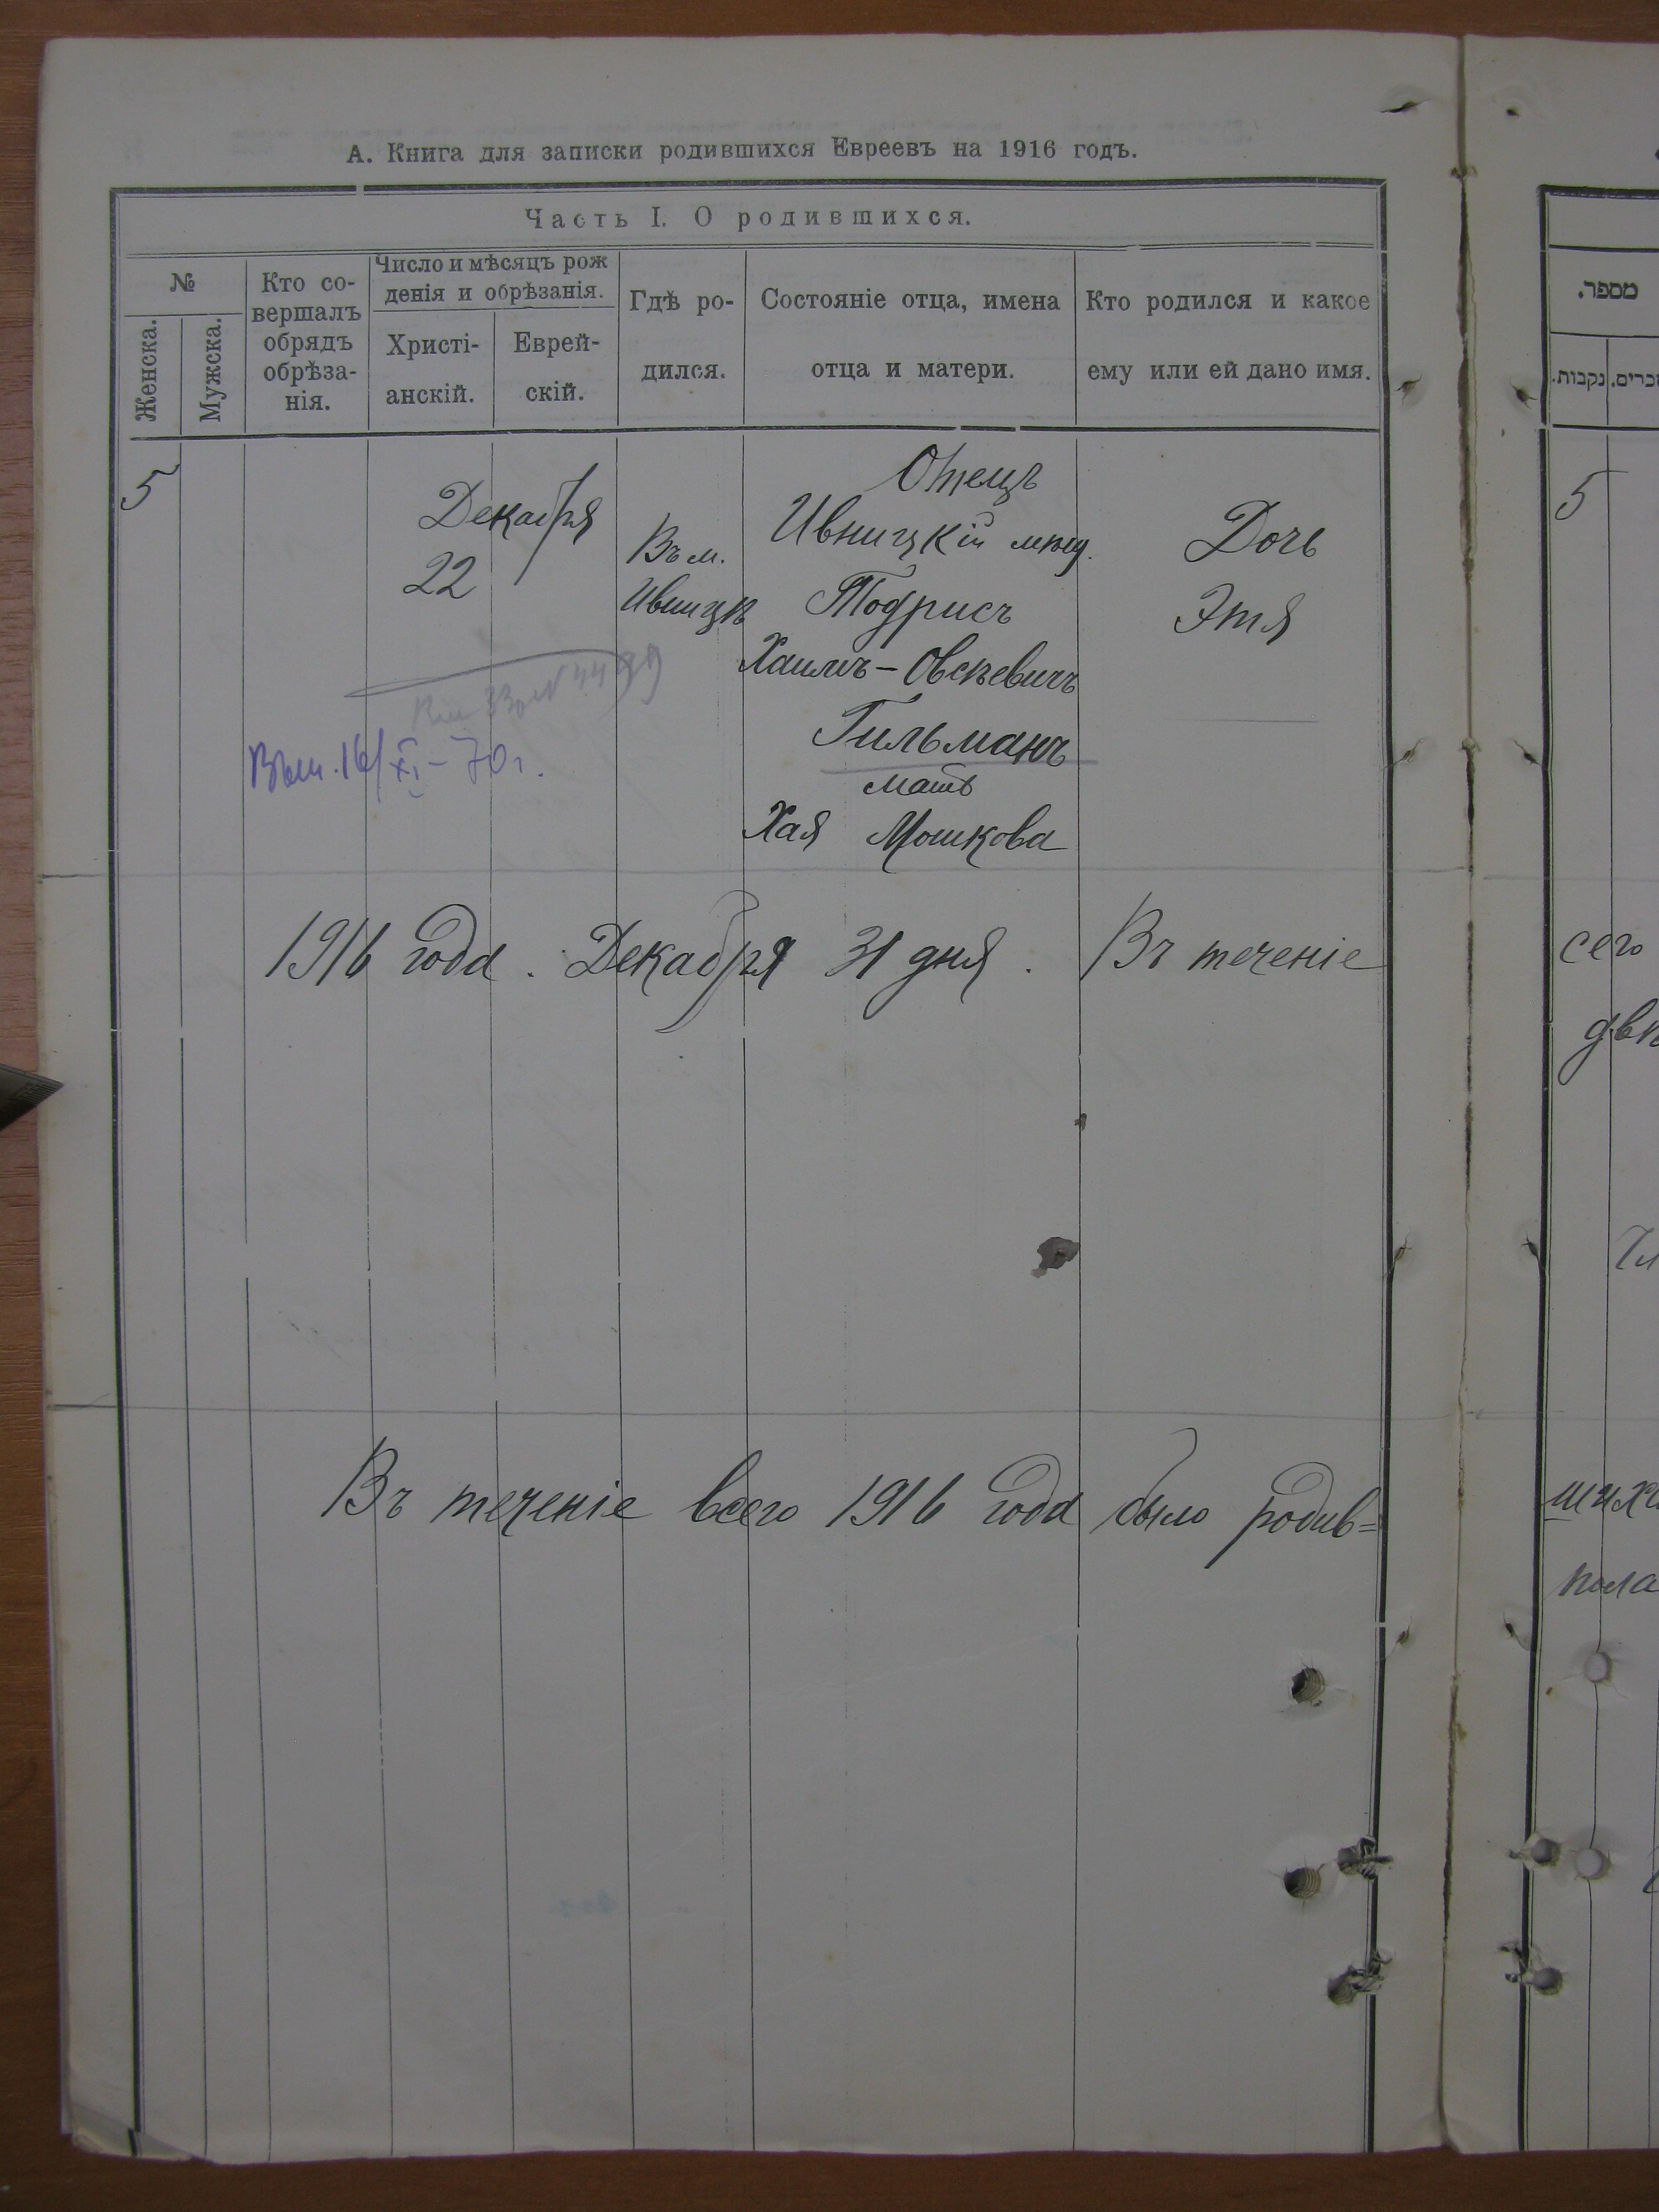 А. Книга для записки родившихся Евреевъ на 1916 годъ.
Часть I. О родившихся.
№
Женска.
Мужска.
Кто со-
вершалъ
обрядъ
обрѣза-
нія.
Число и мѣсяцъ рож
денія и обрѣзанія.
Христі-
анскій.
Еврей-
скій.
Гдѣ ро-
дился.
Состояніе отца, имена
отца и матери.
Кто родился и какое
ему или ей дано имя.
5
Декабря
22
Въ м.
Ивницѣ
Отецъ
Ивницкій мѣщ.
Тодрисъ
Хаимъ-Овсѣевичъ
Гильманъ
мать
Хая Мошкова
Дочь
Этя
16/XI-70 г.
1916 года. Декабря 31 дня. Въ теченіе
Въ теченіе всего 1916 года было родив=
מספר.
נקבות.
זכרים.
5
сего
двѣ
шихся
пола